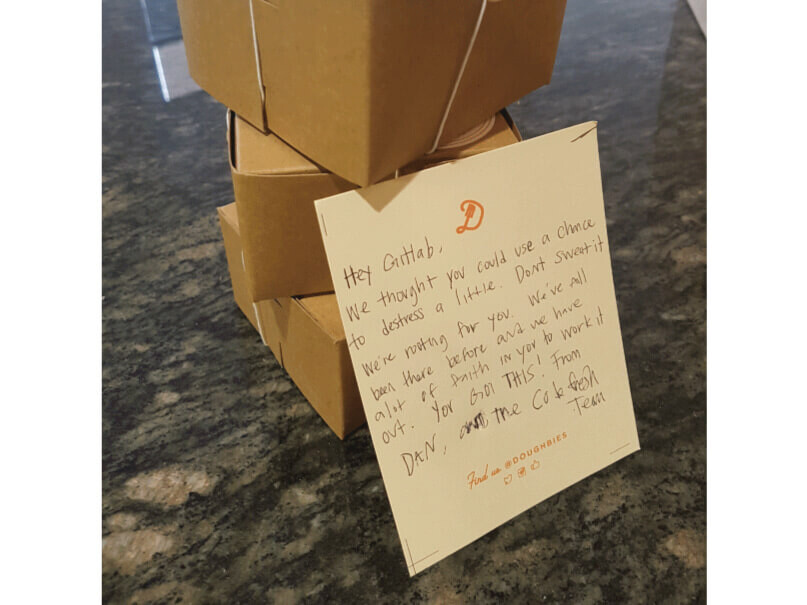 D
Hey GitLab,
We thought you could use a chance
to destress a little. Dont sweat it
we're rooting for you. We've all
been there before and we have
a lot of faith in you to work it
out. You GOT THIS! From
DAN, and the Codefresh
Team
Find us @DOUGHBIES